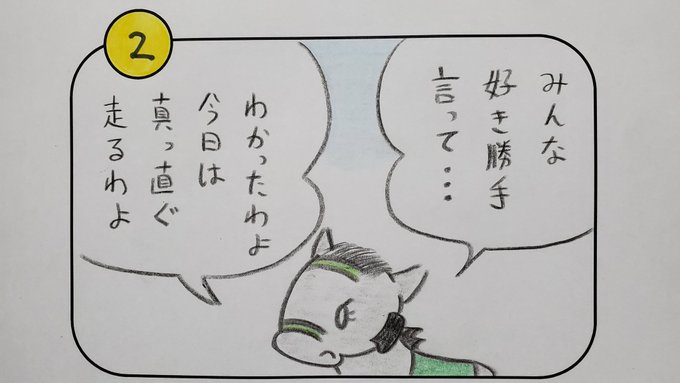 2
みんな
好き勝手
言って・・・
わかったわよ
今日は
真っ直ぐ
走るわよ